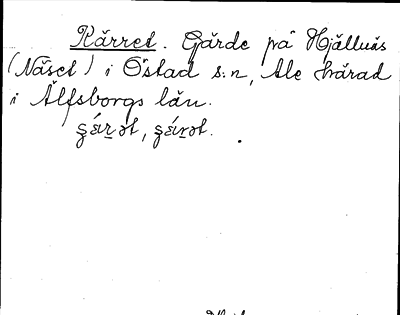 Kärret. Gärde på Hjällnäs
(Näset) i Östad s:n, Ale härad
i Älfsborgs län.
ʂǽrət, ʂǽrət.